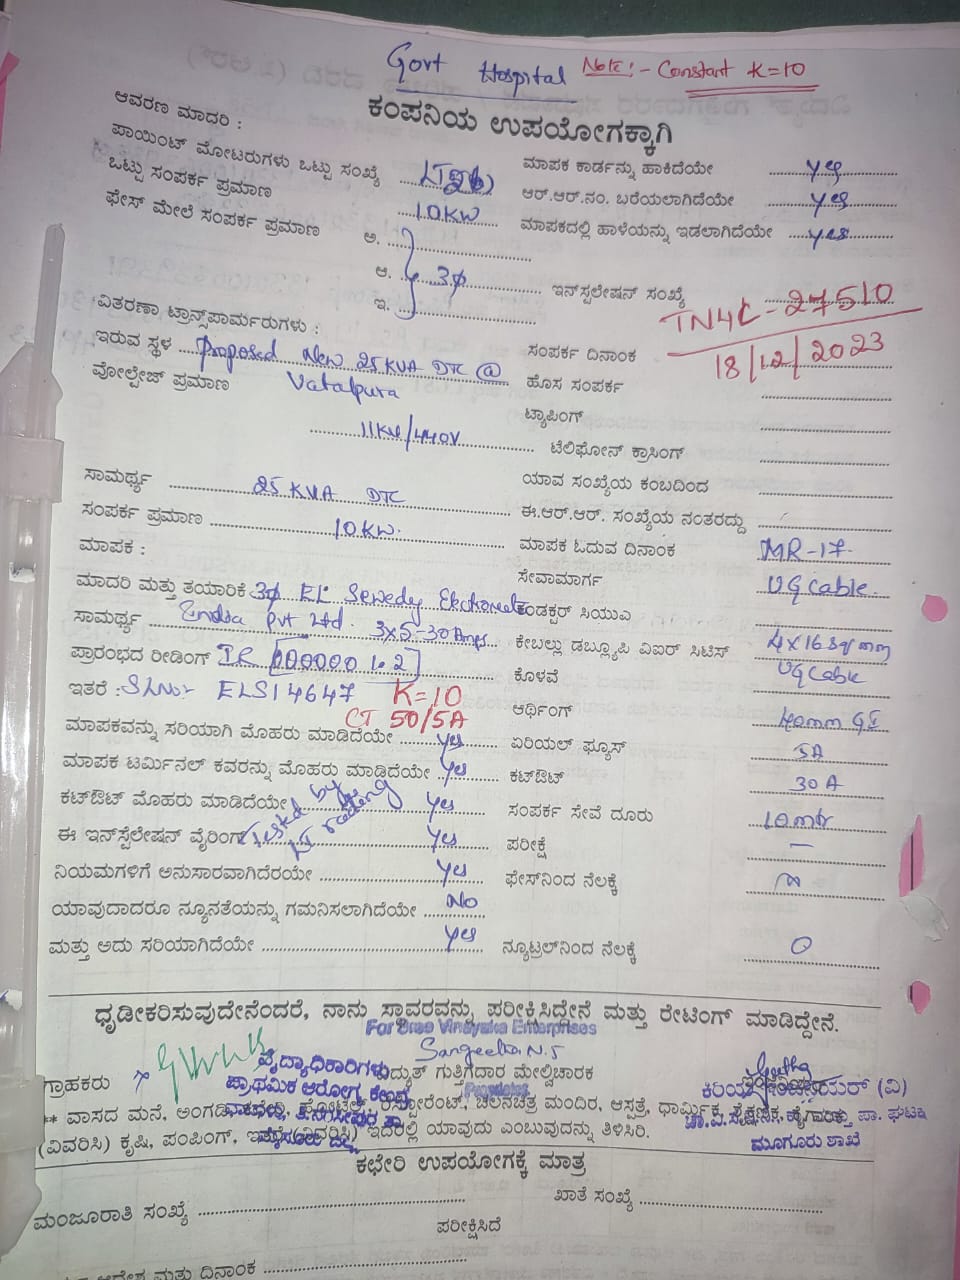 Govt Hospital Note:- Constant K=10
ಕಂಪನಿಯ ಉಪಯೋಗಕ್ಕಾಗಿ
ಆವರಣ ಮಾದರಿ :
ಪಾಯಿಂಟ್ ಮೋಟರುಗಳು ಒಟ್ಟು ಸಂಖ್ಯೆ
ಒಟ್ಟು ಸಂಪರ್ಕ ಪ್ರಮಾಣ 10KW
ಫೇಸ್ ಮೇಲೆ ಸಂಪರ್ಕ ಪ್ರಮಾಣ ಅ.
ಆ. 3φ
ಇ.
ಮಾಪಕ ಕಾರ್ಡನ್ನು ಹಾಕಿದೆಯೇ yes
ಆರ್.ಆರ್.ನಂ. ಬರೆಯಲಾಗಿದೆಯೇ yes
ಮಾಪಕದಲ್ಲಿ ಹಾಳೆಯನ್ನು ಇಡಲಾಗಿದೆಯೇ yes
ಇನ್‌ಸ್ಟಲೇಷನ್ ಸಂಖ್ಯೆ TN4L-27510
ವಿತರಣಾ ಟ್ರಾನ್ಸ್‌ಪಾರ್ಮರುಗಳು :
ಇರುವ ಸ್ಥಳ Proposed New 25KVA DTC @
Vatalpura
ವೋಲ್ಟೇಜ್ ಪ್ರಮಾಣ
11KV/440V
ಸಂಪರ್ಕ ದಿನಾಂಕ 18/12/2023
ಹೊಸ ಸಂಪರ್ಕ
ಟ್ಯಾಪಿಂಗ್
ಟೆಲಿಫೋನ್ ಕ್ರಾಸಿಂಗ್
ಸಾಮರ್ಥ್ಯ 25 KVA DTC
ಸಂಪರ್ಕ ಪ್ರಮಾಣ 10KW.
ಮಾಪಕ :
ಯಾವ ಸಂಖ್ಯೆಯ ಕಂಬದಿಂದ
ಈ.ಆರ್.ಆರ್. ಸಂಖ್ಯೆಯ ನಂತರದ್ದು
ಮಾಪಕ ಓದುವ ದಿನಾಂಕ MR-17
ಸೇವಾಮಾರ್ಗ UG Cable.
ಮಾದರಿ ಮತ್ತು ತಯಾರಿಕೆ 3φ EL Sewedy Electrometer
ಸಾಮರ್ಥ್ಯ India Pvt Ltd. 3X5-30Amps
ಪ್ರಾರಂಭದ ರೀಡಿಂಗ್ IR 000000 1.2
ಇತರೆ : SLNo:- ELS14647 K=10
CT 50/5A
ಕಂಡಕ್ಟರ್ ಸಿಯುಎ
ಕೇಬಲ್ಲು ಡಬ್ಲ್ಯೂಪಿ ವಿಐರ್ ಸಿಟಿಸ್ 4X16 Sqmm
ಕೊಳವೆ UG Cable
ಆರ್ಥಿಂಗ್ 40mm GI
ಮಾಪಕವನ್ನು ಸರಿಯಾಗಿ ಮೊಹರು ಮಾಡಿದೆಯೇ yes
ಮಾಪಕ ಟರ್ಮಿನಲ್ ಕವರನ್ನು ಮೊಹರು ಮಾಡಿದೆಯೇ yes
ಕಟ್‌ಔಟ್ ಮೊಹರು ಮಾಡಿದೆಯೇ yes
ಈ ಇನ್‌ಸ್ಟೆಲೇಷನ್ ವೈರಿಂಗ್ yes
ನಿಯಮಗಳಿಗೆ ಅನುಸಾರವಾಗಿದೆರಯೇ yes
ಯಾವುದಾದರೂ ನ್ಯೂನತೆಯನ್ನು ಗಮನಿಸಲಾಗಿದೆಯೇ No
ಮತ್ತು ಅದು ಸರಿಯಾಗಿದೆಯೇ yes
ಏರಿಯಲ್ ಫ್ಯೂಸ್ 5A
ಕಟ್‌ಔಟ್ 30A
ಸಂಪರ್ಕ ಸೇವೆ ದೂರು
ಪರೀಕ್ಷೆ –
ಫೇಸ್‌ನಿಂದ ನೆಲಕ್ಕೆ
ನ್ಯೂಟ್ರಲ್‌ನಿಂದ ನೆಲಕ್ಕೆ 0
ಧೃಡೀಕರಿಸುವುದೇನೆಂದರೆ, ನಾನು ಸ್ಥಾವರವನ್ನು ಪರೀಕ್ಷಿಸಿದ್ದೇನೆ ಮತ್ತು ರೇಟಿಂಗ್ ಮಾಡಿದ್ದೇನೆ.
For Sree Vinayaka Enterprises
Sangeetha.N.S
ಗ್ರಾಹಕರು ವಿದ್ಯುತ್ ಗುತ್ತಿಗೆದಾರ ಮೇಲ್ವಿಚಾರಕ ಕಿರಿಯ ಇಂಜಿನಿಯರ್ (ವಿ)
ವೈದ್ಯಾಧಿಕಾರಿಗಳು
ಪ್ರಾಥಮಿಕ ಆರೋಗ್ಯ ಕೇಂದ್ರ
** ವಾಸದ ಮನೆ, ಅಂಗಡಿ, ಕಛೇರಿ, ಹೋಟೆಲ್, ರೆಸ್ಟೋರೆಂಟ್, ಚಲನಚಿತ್ರ ಮಂದಿರ, ಆಸ್ಪತ್ರೆ, ಧಾರ್ಮಿಕ, ಶೈಕ್ಷಣಿಕ, ಪಾ. ಘಟಕ
(ವಿವರಿಸಿ) ಕೃಷಿ, ಪಂಪಿಂಗ್, ಇತರೆ (ವಿವರಿಸಿ) ಇದರಲ್ಲಿ ಯಾವುದು ಎಂಬುವುದನ್ನು ತಿಳಿಸಿರಿ.
ಮೂಗೂರು ಶಾಖೆ
ಕಛೇರಿ ಉಪಯೋಗಕ್ಕೆ ಮಾತ್ರ
ಮಂಜೂರಾತಿ ಸಂಖ್ಯೆ ಖಾತೆ ಸಂಖ್ಯೆ
ಪರೀಕ್ಷಿಸಿದೆ
ಮತ್ತು ದಿನಾಂಕ